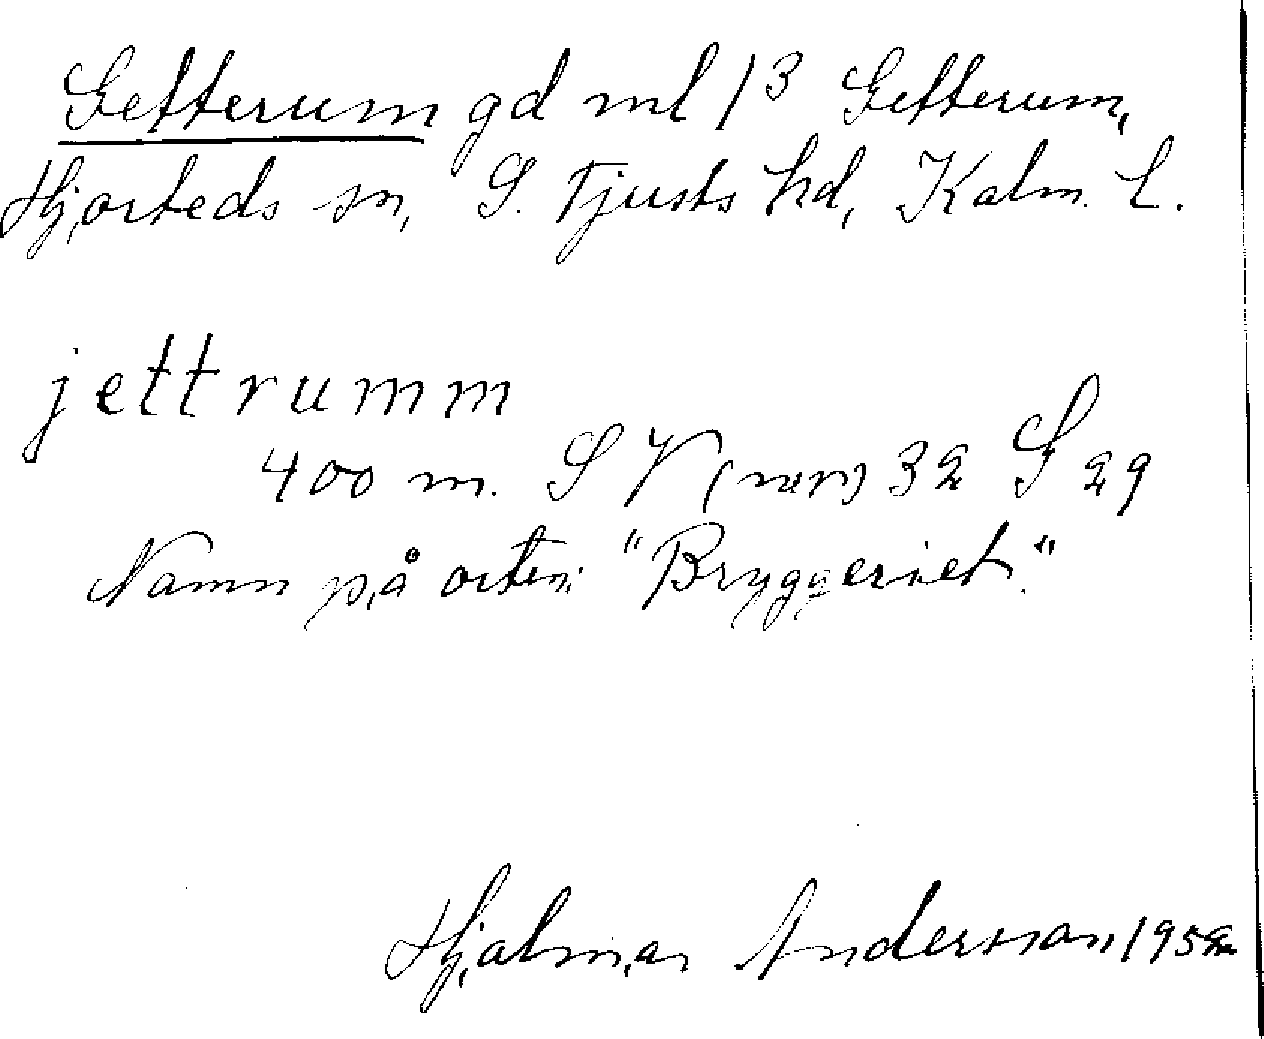 Getterum gd ml 1³ Getterum,
Hjorteds sn, S. Tjusts hd, Kalm. L.
jettrumm
400 m. SV (nr) 32 G 29
Namn på orten: "Bryggeriet."
Hjalmar Andersson 1952